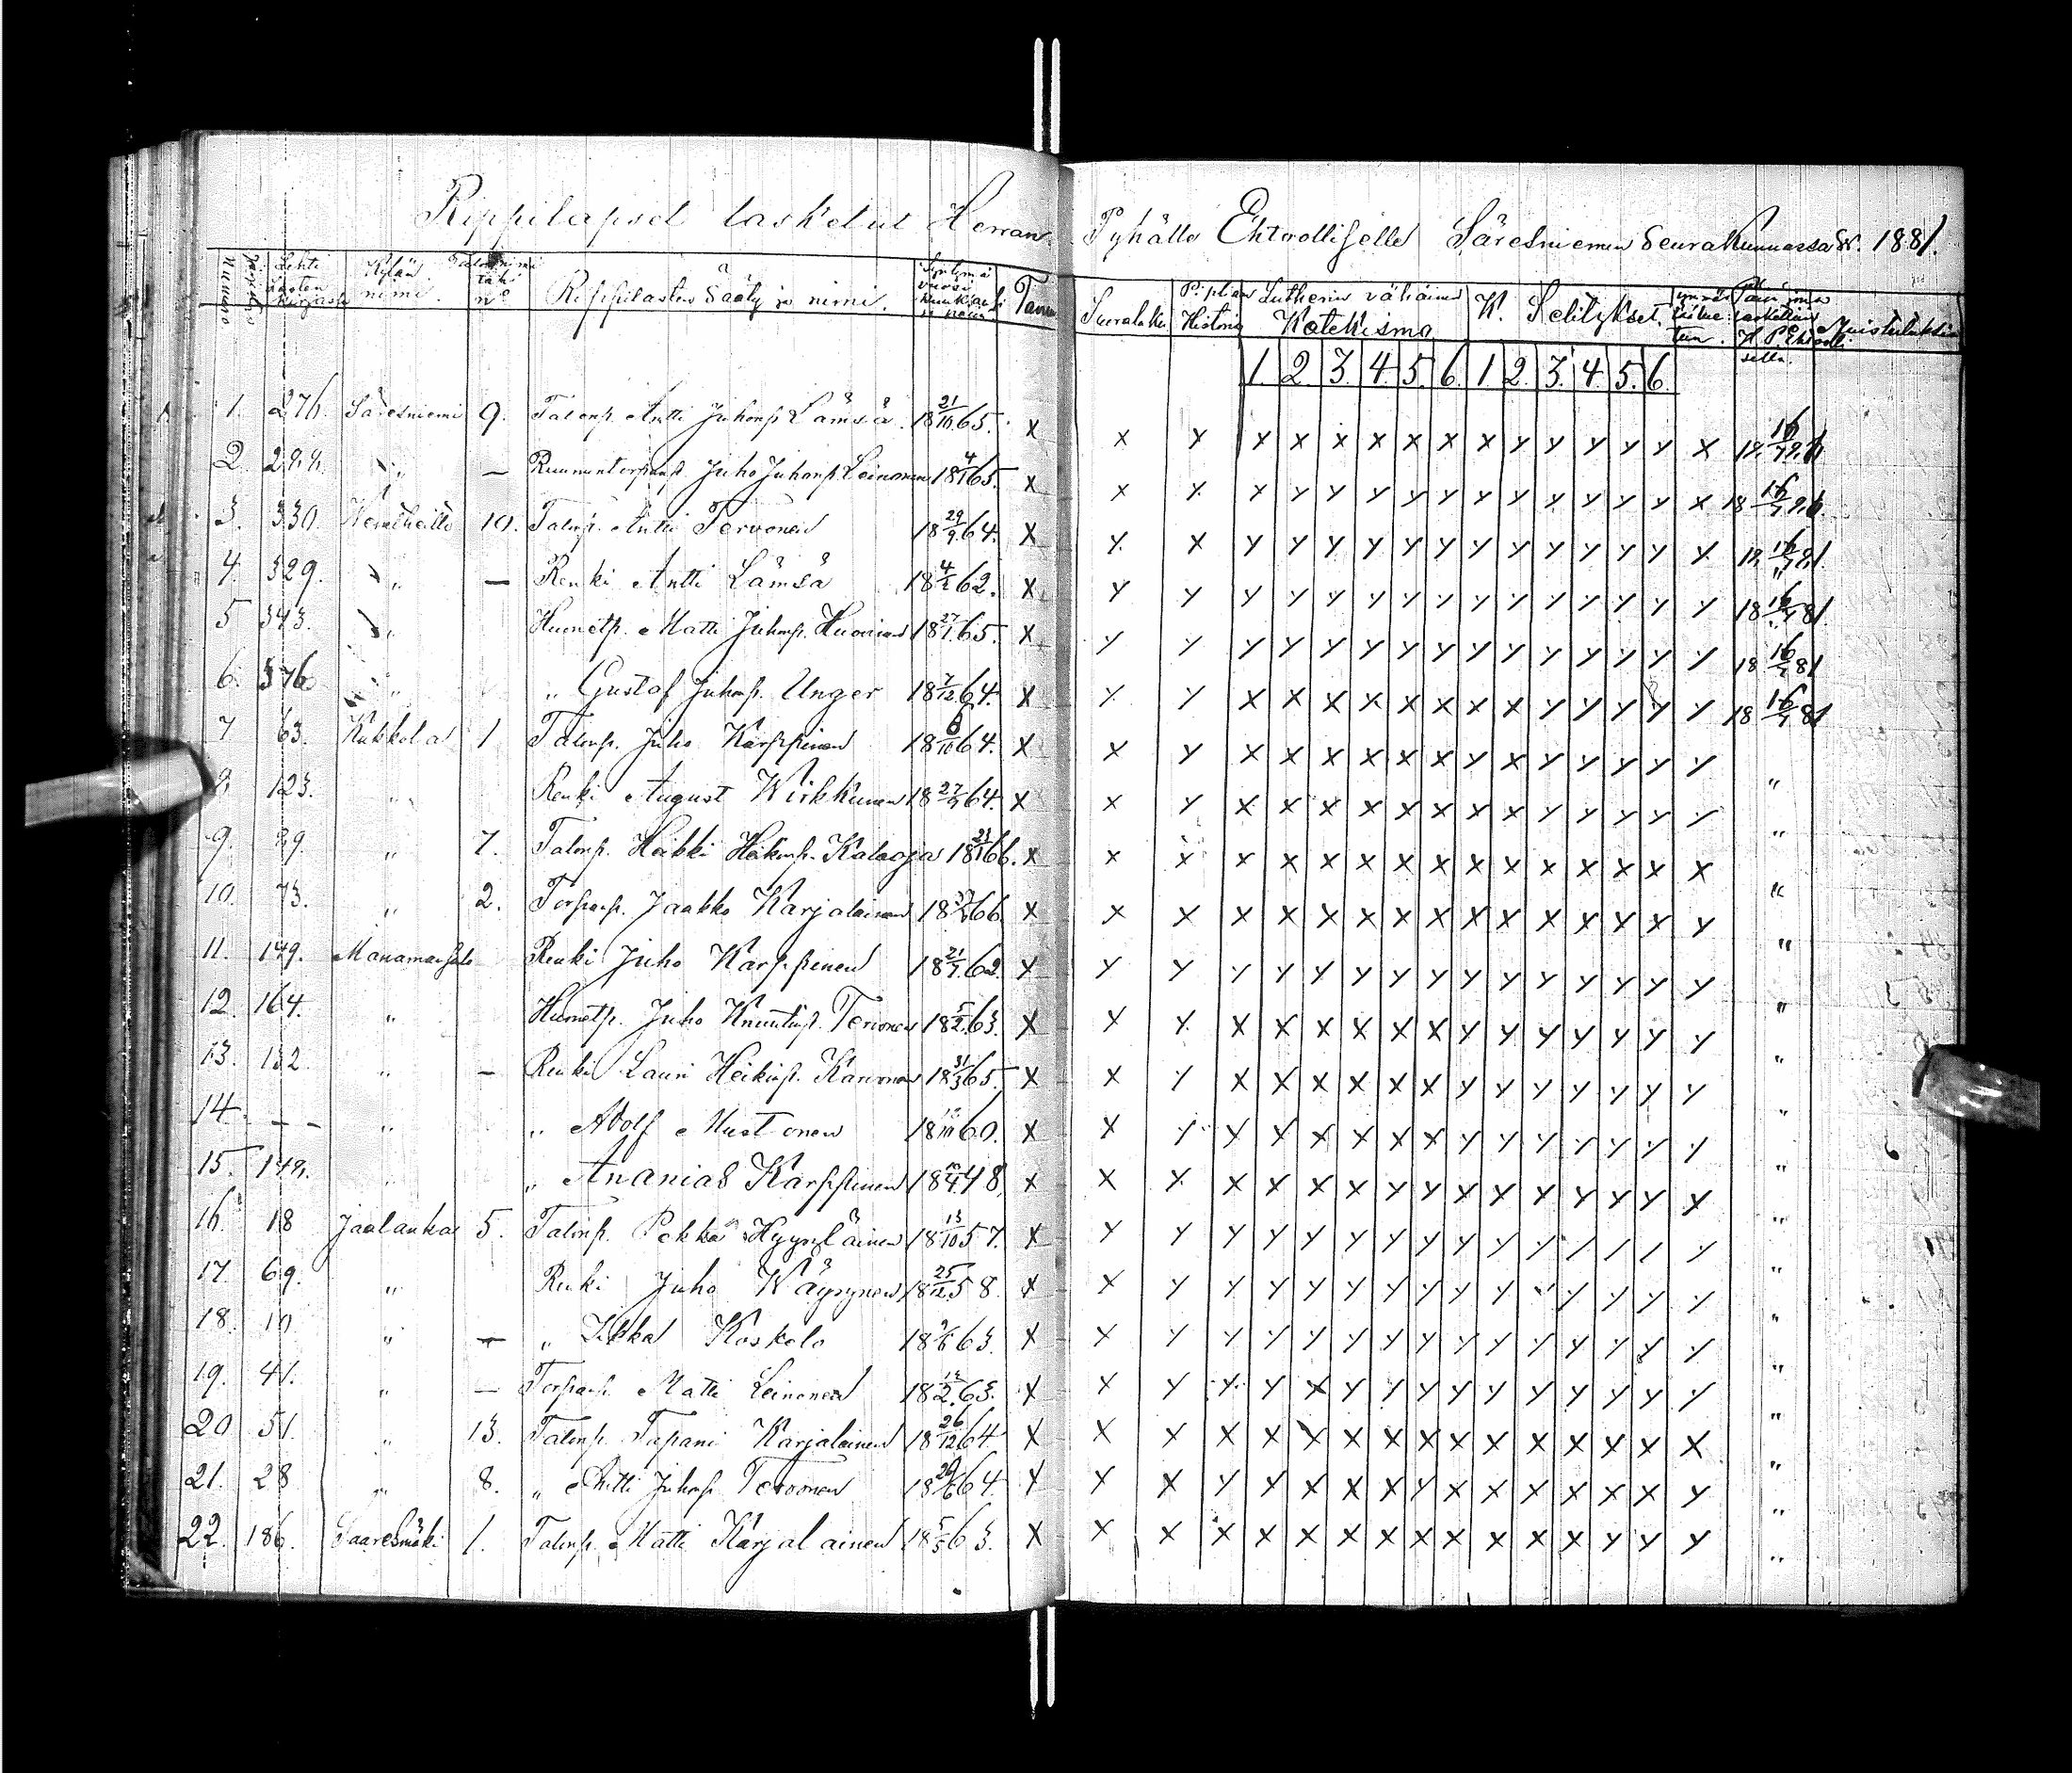 Rippilapset lasketut Herran Pyhälle Ehtoolliselle Säresniemen Seurakunnassa v. 1881.
Numero Lehti lasten kirjassa Kylän nimi. Talon nimi tahi No Rippilasten Sääty ja nimi. Syntymä vuosi kuukausi ja päivä Tavu Suoraluku Piplian Historia Lutherin vähäinen Katekismo K. Selitykset. Muistutuksia
1. 2. 3. 4. 5. 6. 1 2. 3. 4. 5. 6.
1. 276. Säresniemi 9. Talonp. Antti Juhonp. Lämsä. 18 21/10 65. x x x x x x x x x x y y y y y x 18 16/7 81
2. 288. " — Ruununtorpanp. Juho Juhonp. Leinonen 18 4/1 65. x x y x y y y y y y y y y y y x 18 16/7 81.
3. 330. 10. Talonp. Antti Tervonen 18 29/9 64. x y x y y y y y y y y y y y y x 18 16/7 81.
4. 329. " — Renki Antti Lämsä 18 62. x y y y y y y y y y y y y y y y 18 16/7 81.
5 343. " Huonetp. Matti Juhonp. Huovinen 18 27/1 65. x y y y y y y y y y y y y y y y 18 16/7 81
6. 376 " " Gustaf Juhonp. Unger 18 7/12 64. x y y x x x x x x x x y y y y y 18 16/7 81
7 63. Kukkola 1 Talonp. Juho Karppinen 18 6/10 64. x x y x x x x x x y x y y y y y "
8. 123. " Renki August Wirkkunen 18 27/9 64. x x y x x x x x x x x y y y y y "
9. 29. " 7. Talonp. Heikki Heikinp. Kalaoja 18 23/1 66. x x x x x x x x x x x x x x x x "
10. 73. " 2. Torparp. Jaakko Karjalainen 18 66. x x x x x x x x x x x x x x x y "
11. 149. Manamansalo Renki Juho Karppinen 18 21/7 62. x y y y y y y y y y y y y y y y "
12. 164. " Huonetp. Juho Knuutinp. Tervonen 18 5/2 63. x x y x x x x x x y y y y y y y "
13. 132. " — Renki Lauri Heikinp. Karvonen 18 31/3 65. x x y x x x x x x y y y y y y y "
14. — — " " Adolf Mustonen 18 60. x x y y x x x x x y y y y y y y "
15. 149. " " Ananias Karppinen 18 48. x x x x x x x y y x x x y y y x "
16. 18 Jaalanka 5. Talonp. Pekka Hyyryläinen 18 13/10 57. x y y y y y y y y y y y / / / y "
17. 69. " Renki Juho Wäyrynen 18 25/12 58. x x y y y y y y y y y y y y y y "
18. 10 " — " Iikka Koskelo 18 63. x x y y y y y y y y y y y y y y "
19. 41. " — Torparp. Matti Leinonen 18 63. x x y y y x y y y y y y y y y y "
20 51. " 13. Talonp. Tapani Karjalainen 18 26/12 64 x x x x x x x x x x x x x y x x "
21. 28 " 8. " Antti Juhonp. Tervonen 18 64. x x x y y x x x y x x x x x x y "
22. 186. Saaresmäki 1. Talonp. Matti Karjalainen 18 5/5 63. x x x x x x x x x x x x x y y y "